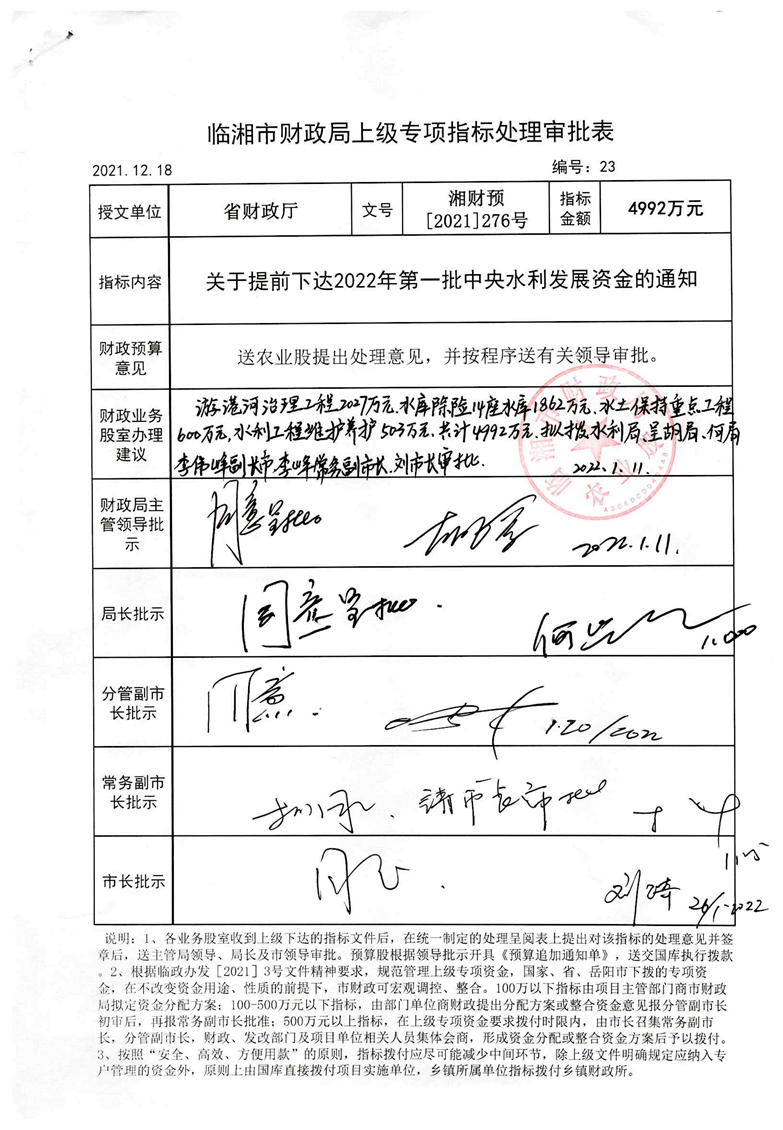 临湘市财政局上级专项指标处理审批表
2021.12.18 编号：23
授文单位 省财政厅 文号 湘财预[2021]276号 指标金额 4992万元
指标内容 关于提前下达2022年第一批中央水利发展资金的通知
财政预算意见 送农业股提出处理意见，并按程序送有关领导审批。
财政业务股室办理建议
游港河治理工程2027万元、水库除险14座水库1862万元、水土保持重点工程
600万元，水利工程维护养护503万元，共计4992万元，拟拨水利局，呈胡局、何局
李伟峰副市长、李峰常务副市长、刘市长审批。
2022.1.11.
临湘市财政局
农业股
财政局主管领导批示 同意呈批 2022.1.11.
局长批示 同意呈批.
分管副市长批示 同意. 1.20/2022
常务副市长批示 拟同意、请市长审批
市长批示 同意. 刘琦 26/1-2022
说明：1、各业务股室收到上级下达的指标文件后，在统一制定的处理呈阅表上提出对该指标的处理意见并签
章后，送主管局领导、局长及市领导审批。预算股根据领导批示开具《预算追加通知单》，送交国库执行拨款
。2、根据临政办发［2021］3号文件精神要求，规范管理上级专项资金，国家、省、岳阳市下拨的专项资
金，在不改变资金用途、性质的前提下，市政可宏观调控、整合。100万以下指标由项目主管部门商市财政
局拟定资金分配方案；100-500万元以下指标，由部门单位商财政提出分配方案或整合资金意见报分管副市长
初审后，再报常务副市长批准；500万元以上指标，在上级专项资金要求拨付时限内，由市长召集常务副市
长，分管副市长，财政、发改部门及项目单位相关人员集体会商，形成资金分配或整合资金方案后予以拨付。
3、按照“安全、高效、方便用款”的原则，指标拨付应尽可能减少中间环节，除上级文件明确规定应纳入专
户管理的资金外，原则上由国库直接拨付项目实施单位，乡镇所属单位指标拨付乡镇财政所。